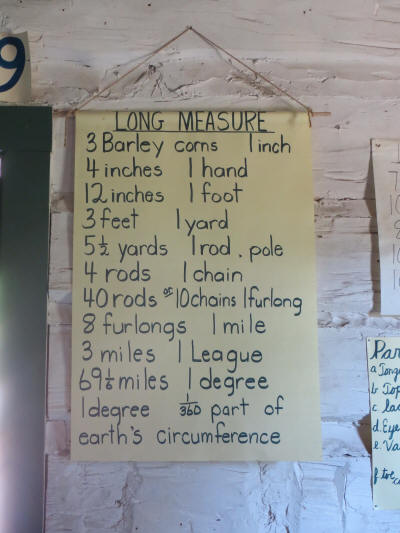 9
LONG MEASURE
3 Barley corns 1 inch
4 inches 1 hand
12 inches 1 foot
3 feet 1 yard
5½ yards 1 rod, pole
4 rods 1 chain
40 rods or 10 chains 1 furlong
8 furlongs 1 mile
3 miles 1 League
69½ miles 1 degree
1 degree 1/360 part of
earth's circumference
a
b Top
c
d. Eye
e. Va